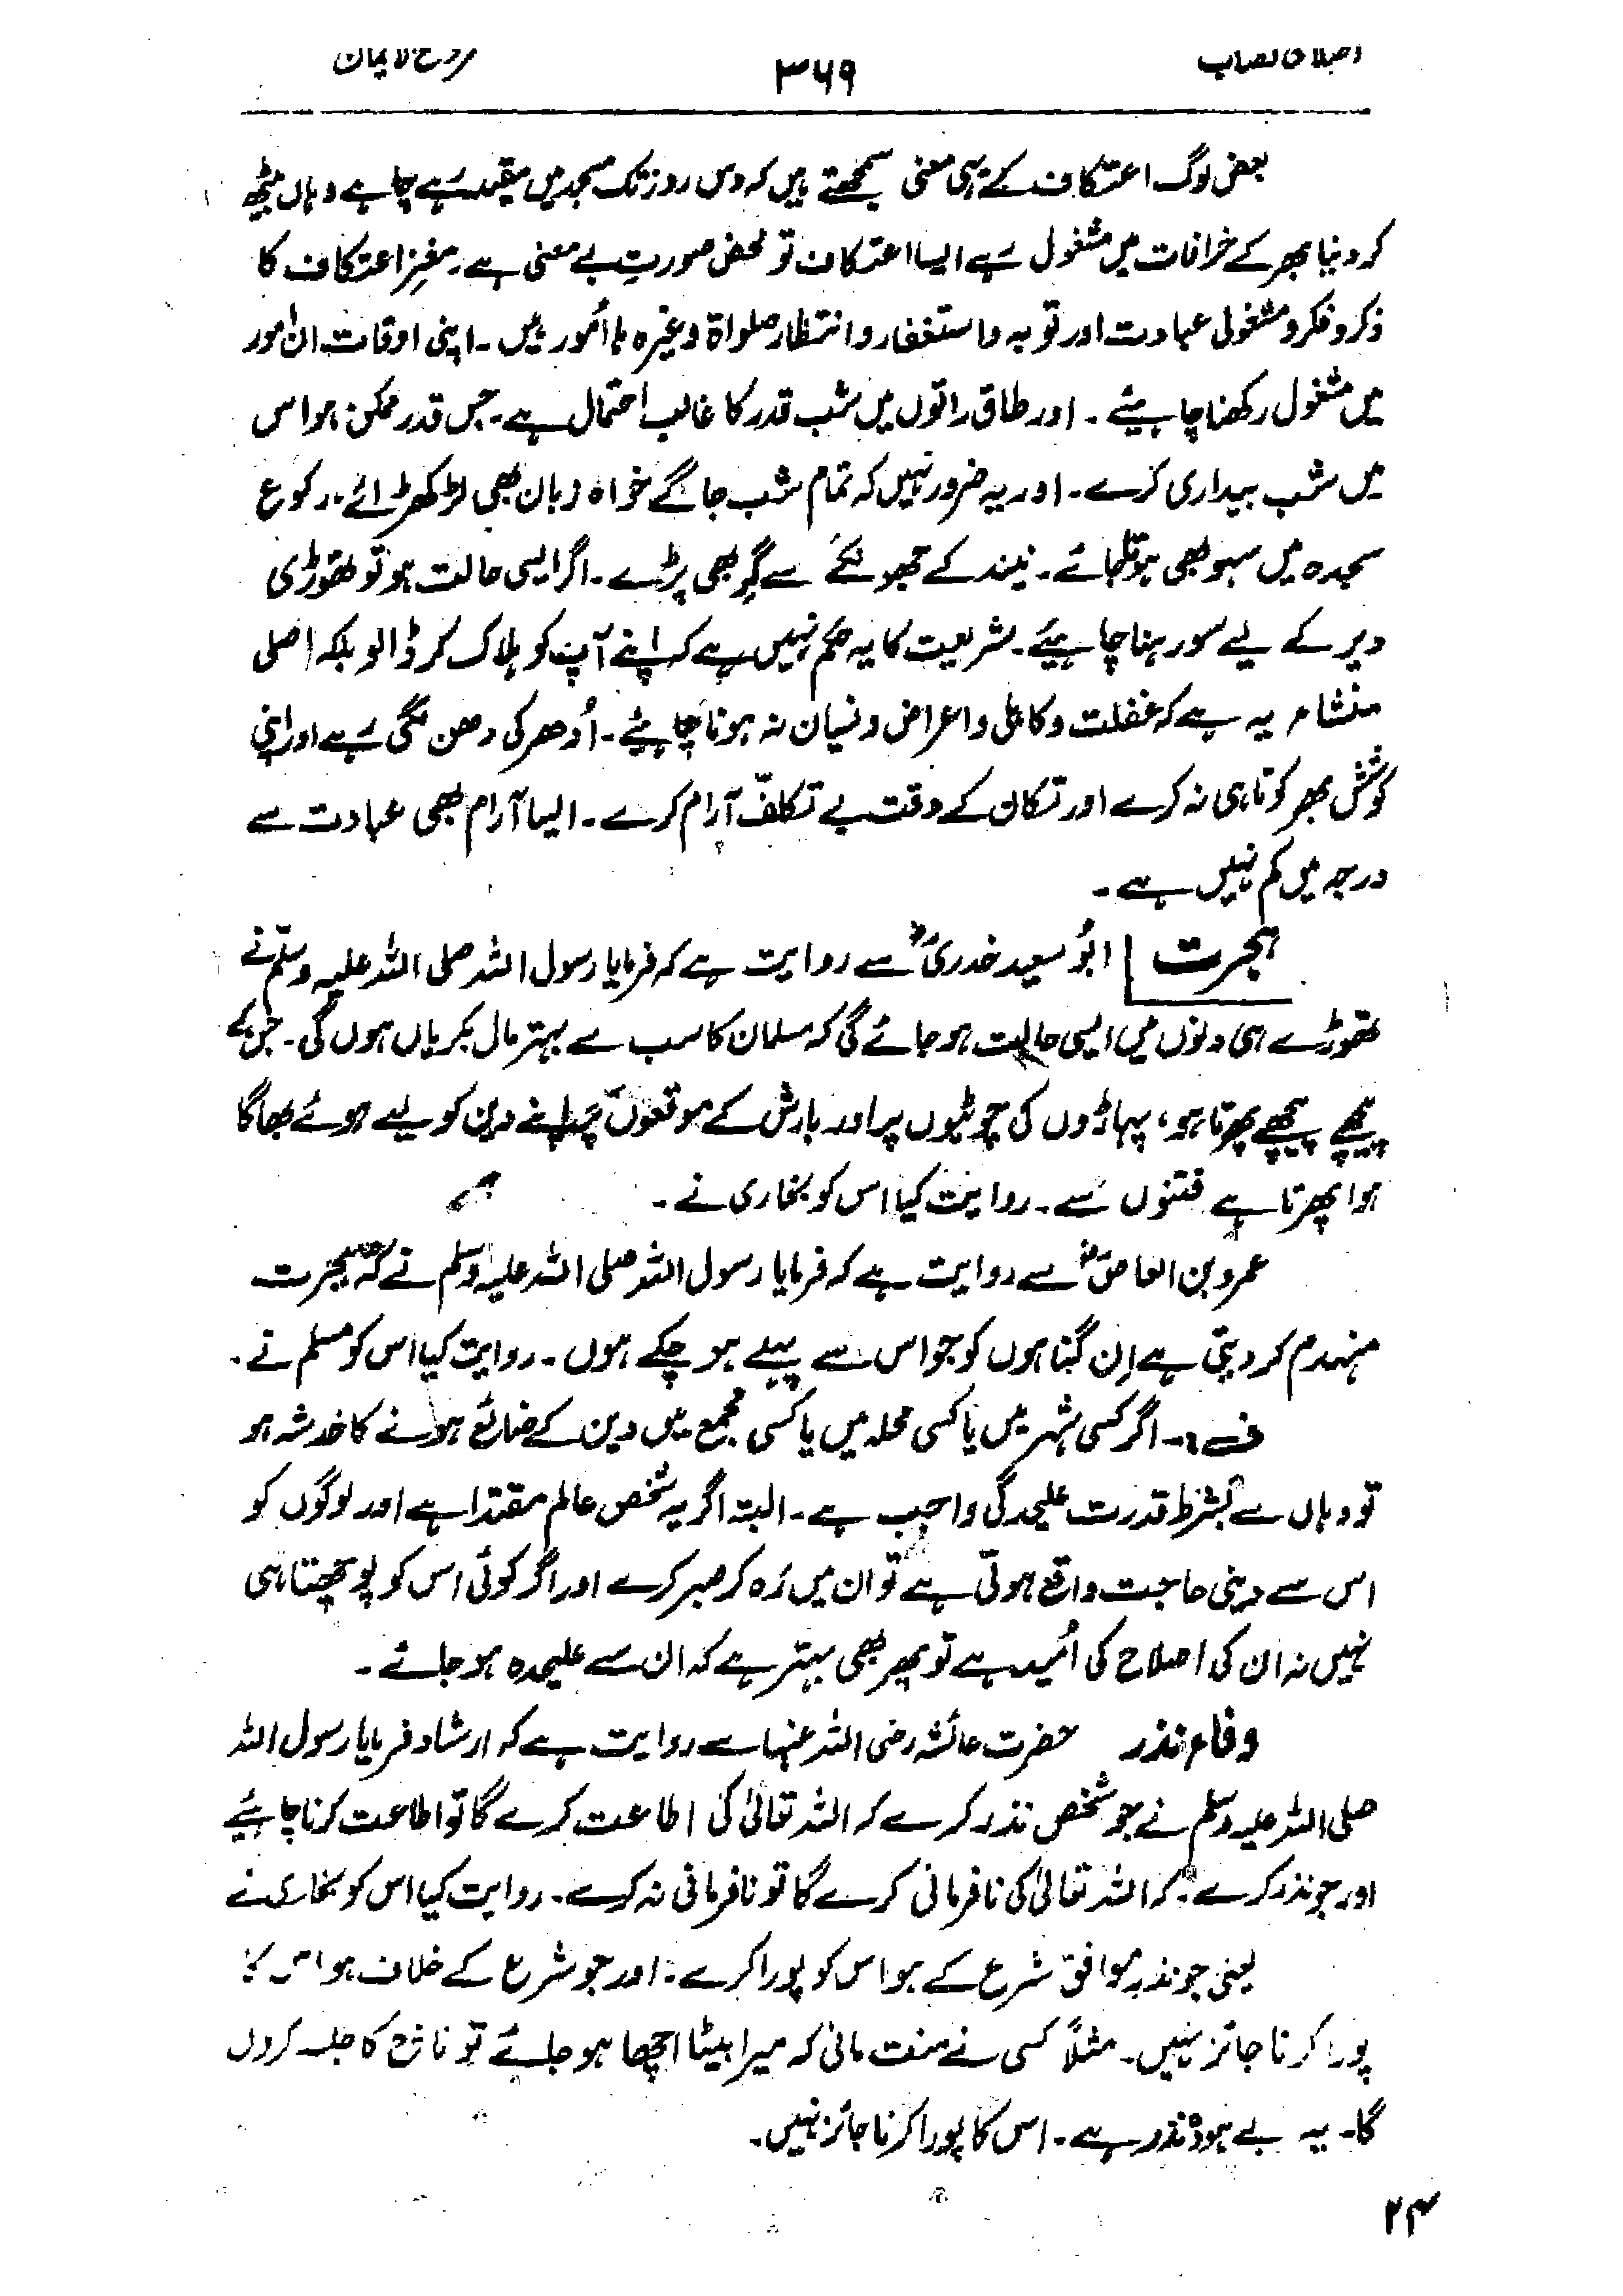 اصلاحی نصاب
۳۶۹
فروع الایمان
بعض لوگ اعتکاف کے یہی معنی سمجھتے ہیں کہ دس روز تک مسجد میں مقید رہے چاہے وہاں بیٹھ
کر دنیا بھر کے خرافات میں مشغول رہے ایسا اعتکاف تو محض صورتِ بے معنی ہے۔ مغزِ اعتکاف کا
ذکر و فکر و مشغولی عبادت اور توبہ و استغفار و انتظار صلواۃ وغیرہ ہا اُمور ہیں۔ اپنی اوقات ان امور
میں مشغول رکھنا چاہیئے۔ اور طاق راتوں میں شب قدر کا غالب احتمال ہے۔ جس قدر ممکن ہو اس
میں شب بیداری کرے۔ اور یہ ضرور نہیں کہ تمام شب جاگے خواہ زبان بھی لڑکھڑائے، رکوع
سجدہ میں سہو بھی ہوتا جائے۔ نیند کے جھونکے سے گِر بھی پڑے۔ اگر ایسی حالت ہو تو تھوڑی
دیر کے لیے سو رہنا چاہیئے۔ شریعت کا یہ حکم نہیں ہے کہ اپنے آپ کو ہلاک کر ڈالو بلکہ اصلی
منشاء یہ ہے کہ غفلت و کاہلی و اعراض و نسیان نہ ہونا چاہیئے۔ اُدھر کی دھن لگی رہے اور اپنی
کوشش بھر کوتاہی نہ کرے اور تکان کے وقت بے تکلّف آرام کرے۔ ایسا آرام بھی عبادت سے
درجہ میں کم نہیں ہے۔
ہجرت ابوُ سعید خدریؓ سے روایت ہے کہ فرمایا رسول اللہ صلی اللہ علیہ وسلّم نے
تھوڑے ہی دنوں میں ایسی حالت ہو جائے گی کہ مسلمان کا سب سے بہتر مال بکریاں ہوں گی۔ جن کے
پیچھے پیچھے پھرتا ہو، پہاڑوں کی چوٹیوں پر اور بارش کے موقعوں پر اپنے دین کو لیے ہوئے بھاگا
ہوا پھرتا ہے فتنوں سے۔ روایت کیا اس کو بخاری نے۔
عمرو بن العاصؓ سے روایت ہے کہ فرمایا رسول اللہ صلی اللہ علیہ وسلم نے کہ ہجرت
منہدم کر دیتی ہے اِن گناہوں کو جو اس سے پہلے ہو چکے ہوں۔ روایت کیا اس کو مسلم نے۔
ف:۔ اگر کسی شہر میں یا کسی محلہ میں یا کسی مجمع میں دین کے ضائع ہونے کا خدشہ ہو
تو وہاں سے بشرط قدرت علیحدگی واجب ہے۔ البتہ اگر یہ شخص عالم مقتدا ہے اور لوگوں کو
اس سے دینی حاجت واقع ہوتی ہے تو ان میں رہ کر صبر کرے اور اگر کوئی اس کو پوچھتا ہی
نہیں نہ ان کی اصلاح کی اُمید ہے تو پھر بھی بہتر ہے کہ ان سے علیحدہ ہو جائے۔
وفاء نذر حضرت عائشہ رضی اللہ عنہا سے روایت ہے کہ ارشاد فرمایا رسول اللہ
صلی اللہ علیہ وسلم نے جو شخص نذر کرے کہ اللہ تعالیٰ کی اطاعت کرے گا تو اطاعت کرنا چاہیئے
اور جو نذر کرے کہ اللہ تعالیٰ کی نافرمانی کرے گا تو نافرمانی نہ کرے۔ روایت کیا اس کو بخاری نے
یعنی جو نذر موافق شرع کے ہو اس کو پورا کرے۔ اور جو شرع کے خلاف ہو اس کا
پورا کرنا جائز نہیں۔ مثلاً کسی نے منت مانی کہ میرا بیٹا اچھا ہو جائے تو ناچ کا جلسہ کروں
گا۔ یہ بے ہودہ نذر ہے۔ اس کا پورا کرنا جائز نہیں۔
۲۴